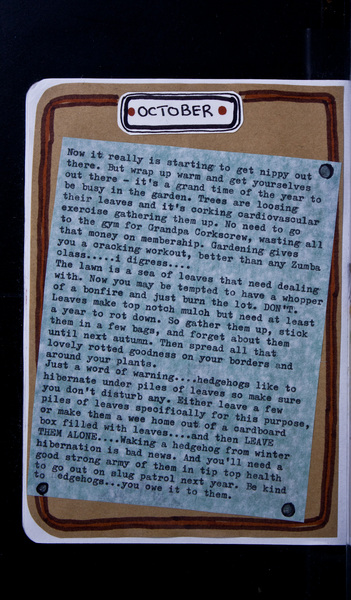 OCTOBER
Now it really is starting to get nippy out
there. But wrap up warm and get yourselves
out there - it's a grand time of the year to
be busy in the garden. Trees are loosing
their leaves and it's corking cardiovascular
exercise gathering them up. No need to go
to the gym for Grandpa Corkscrew, wasting all
that money on membership. Gardening gives
you a cracking workout, better than any Zumba
class.....i digress....
The lawn is a sea of leaves that need dealing
with. Now you may be tempted to have a whopper
of a bonfire and just burn the lot. DON'T.
Leaves make top notch mulch but need at least
a year to rot down. So gather them up, stick
them in a few bags, and forget about them
until next autumn. Then spread all that
lovely rotted goodness on your borders and
around your plants.
Just a word of warning....hedgehogs like to
hibernate under piles of leaves so make sure
you don't disturb any. Either leave a few
piles of leaves specifically for this purpose,
or make them a wee home out of a cardboard
box filled with leaves....and then LEAVE
THEM ALONE....Waking a hedgehog from winter
hibernation is bad news. And you'll need a
good strong army of them in tip top health
to go out on slug patrol next year. Be kind
to edgehogs...you owe it to them.